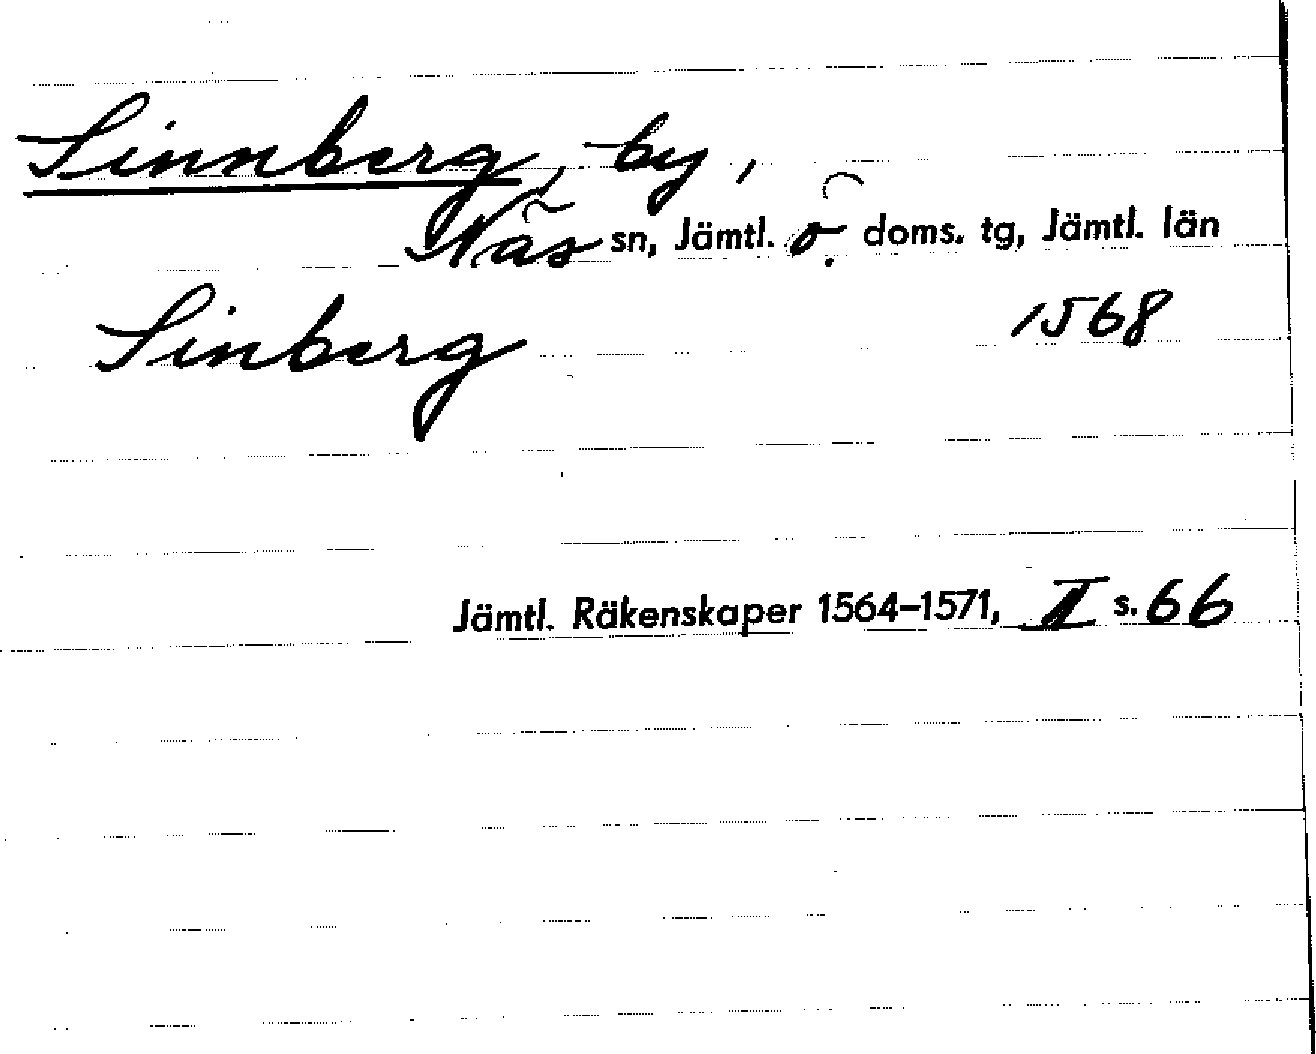 Sinnberg, by,
Näs sn, Jämtl. ö. doms. tg, Jämtl. län
Sinberg 1568
Jämtl. Räkenskaper 1564–1571, II s. 66